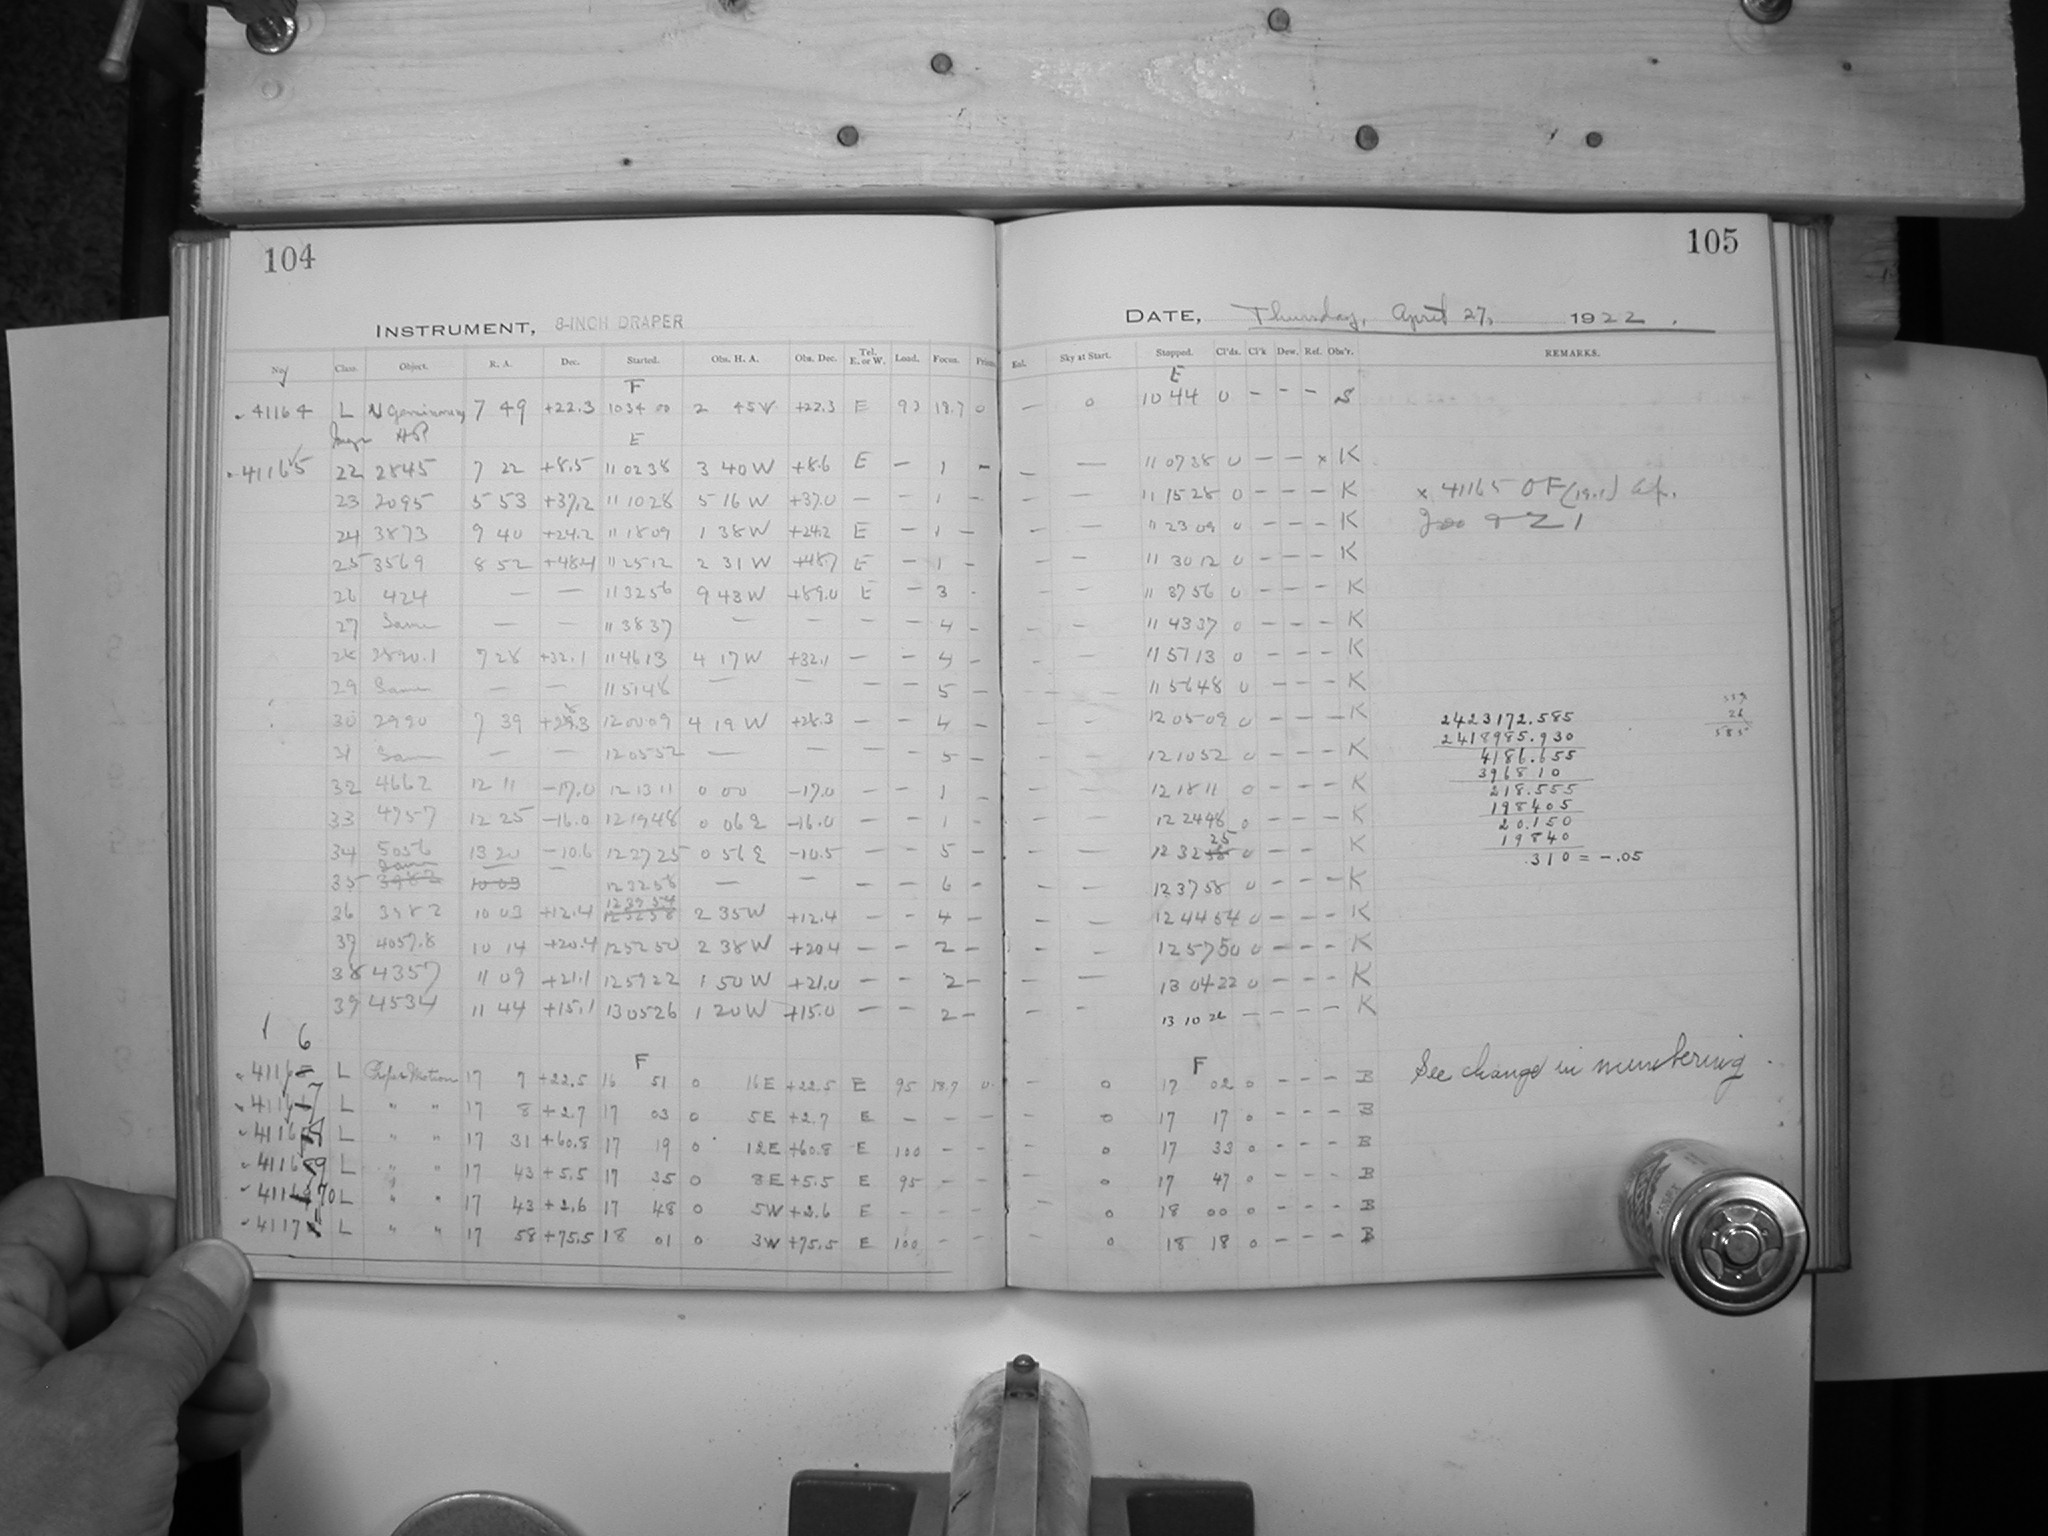 104
105
INSTRUMENT, 8-INCH DRAPER
DATE, Thursday, April 27, 1922.
No. Class. Object. R. A. Dec. Started. Obs. H. A. Obs. Dec. Tel. E. or W. Load. Focus. Prism Rul. Sky at Start. Stopped. Cl'ds. Cl'k Dew. Ref. Obs'r. REMARKS.
F E
41164 L N Geminorum 7 49 +22.3 10 34 00 2 45W +22.3 E 93 18.7 0 — 0 10 44 0 - - - S
HP E
41165 22 2845 7 22 +8.5 11 02 38 3 40 W +8.6 E — 1 - — — 11 07 38 0 - - x K
23 2095 5 53 +37.2 11 10 28 5 16 W +37.0 — — 1 - — — 11 15 28 0 - - - K x 41165 OF (19.1)
24 3873 9 40 +24.2 11 18 09 1 38 W +24.2 E — 1 - — — 11 23 09 0 - - - K
25 3569 8 52 +48.4 11 25 12 2 31 W +48.7 E — 1 - — — 11 30 12 0 - - - K
26 424 — — 11 32 56 9 43 W +89.0 E — 3 - — — 11 37 56 0 - - - K
27 Same — — 11 38 37 — — — — 4 - — — 11 43 37 0 - - - K
28 2820.1 7 28 +32.1 11 46 13 4 17 W +32.1 — — 4 - — — 11 51 13 0 - - - K
29 Same — — 11 51 48 — — — — 5 - — — 11 56 48 0 - - - K
30 2990 7 39 +28.3 12 00 09 4 19 W +28.3 — — 4 - — — 12 05 09 0 - - - K
31 Same — — 12 05 52 — — — — 5 - — — 12 10 52 0 - - - K
32 4662 12 11 -17.0 12 13 11 0 00 -17.0 — — 1 - — — 12 18 11 0 - - - K
33 4757 12 25 -16.0 12 19 48 0 06 E -16.0 — — 1 - — — 12 24 48 0 - - - K
34 5056 13 20 -10.6 12 27 25 0 56 E -10.5 — — 5 - — — 12 32 25 0 - - K
35 Same 3982 10 03 — 12 32 58 — — — — 6 - — — 12 37 58 0 - - - K
36 3982 10 03 +12.4 12 39 54 2 35 W +12.4 — — 4 - — — 12 44 54 0 - - - K
37 4057.8 10 14 +20.4 12 52 50 2 38 W +20.4 — — 2 - — — 12 57 50 0 - - - K
38 4357 11 09 +21.1 12 59 22 1 50 W +21.0 — — 2 - — — 13 04 22 0 - - - K
39 4534 11 44 +15.1 13 05 26 1 20 W +15.0 — — 2 - — — 13 10 26 - - - - K
2423172.585
2418985.930
4186.655
396810
218.555
198405
20.150
19840
.310 = -.05
26
585
F F
41166 L Proper Motion 17 7 +22.5 16 51 0 16E +22.5 E 95 18.7 0 — 0 17 02 0 - - - B See change in numbering.
41167 L " " 17 8 +2.7 17 03 0 5E +2.7 E — — — — 0 17 17 0 - - - B
L " " 17 31 +60.8 17 19 0 12E +60.8 E 100 — — — 0 17 33 0 - - - B
41169 L " " 17 43 +5.5 17 35 0 8E +5.5 E 95 — — — 0 17 47 0 - - - B
41170 L " " 17 43 +2.6 17 48 0 5W +2.6 E — — — — 0 18 00 0 - - - B
41171 L " " 17 58 +75.5 18 01 0 3W +75.5 E 100 — — — 0 18 18 0 - - - B